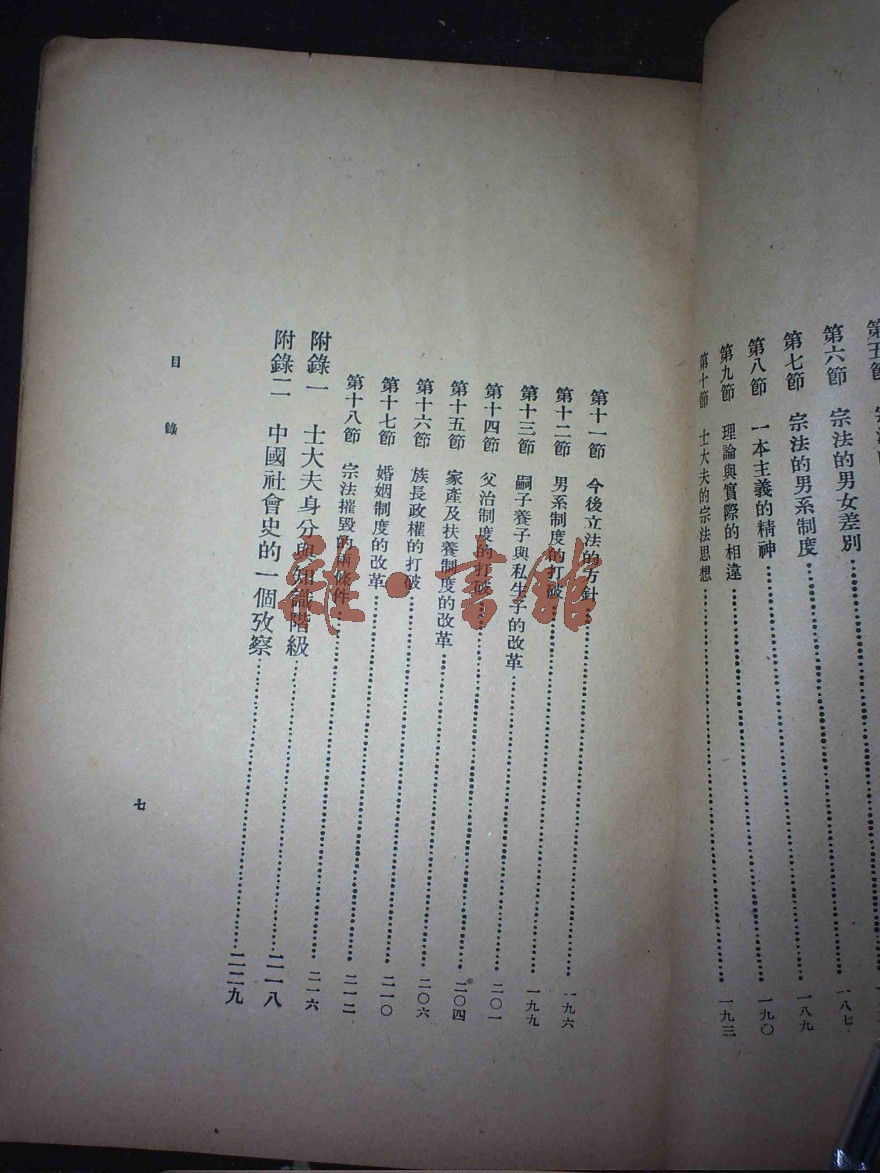 第六節 宗法的男女差別⋯⋯一八七
第七節 宗法的男系制度⋯⋯一八九
第八節 一本主義的精神⋯⋯一九〇
第九節 理論與實際的相違⋯⋯一九三
第十節 士大夫的宗法思想⋯⋯
第十一節 今後立法的方針⋯⋯一九六
第十二節 男系制度的打破⋯⋯一九九
第十三節 嗣子養子與私生子的改革⋯⋯二〇一
第十四節 父治制度的打破⋯⋯二〇四
第十五節 家產及扶養制度的改革⋯⋯二〇六
第十六節 族長政權的打破⋯⋯二一〇
第十七節 婚姻制度的改革⋯⋯二一二
第十八節 宗法摧毀的兩條件⋯⋯二一六
附錄一 士大夫身分與知識階級⋯⋯二一八
附錄二 中國社會史的一個攷察⋯⋯二二九
目錄
七
雜·書館